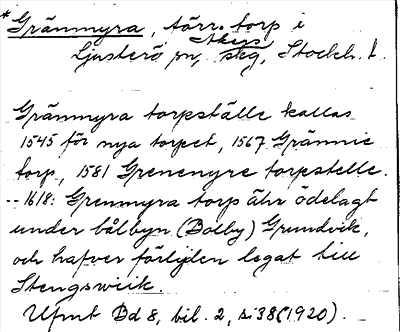 *Gränmyra, törr. torp i
Ljusterö sn, Åkers skg, Stockh. l.
Gränmyra torpställe kallas
1545 för nya torpet, 1567 Grännie
torp, 1581 Grenenyre torpstelle.
-- 1618: Grenmyra torp ähr ödelagt
under bålbyn (Bolby) Grundvik,
och hafver förlijden legat till
Stengswiik.
Ufmt Bd 8, bil. 2, s. 38 (1920).